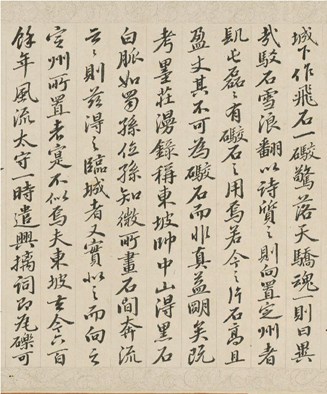 城下作飛石一礮驚落天驕魂一則曰異
哉駮石雪浪翻以詩質之則向置定州者
磊〻有礮石之用焉若今之片石高且
盈丈其不可為礮石而非真益明矣既
考墨莊漫錄稱東坡帥中山得黑石
白脈如蜀孫位孫知微所畫石間奔流
云〻則茲得之臨城者又實似之而向之
定州所置者寔不似焉夫東坡去今六百
餘年風流太守一時遣興摛詞即瓦礫可